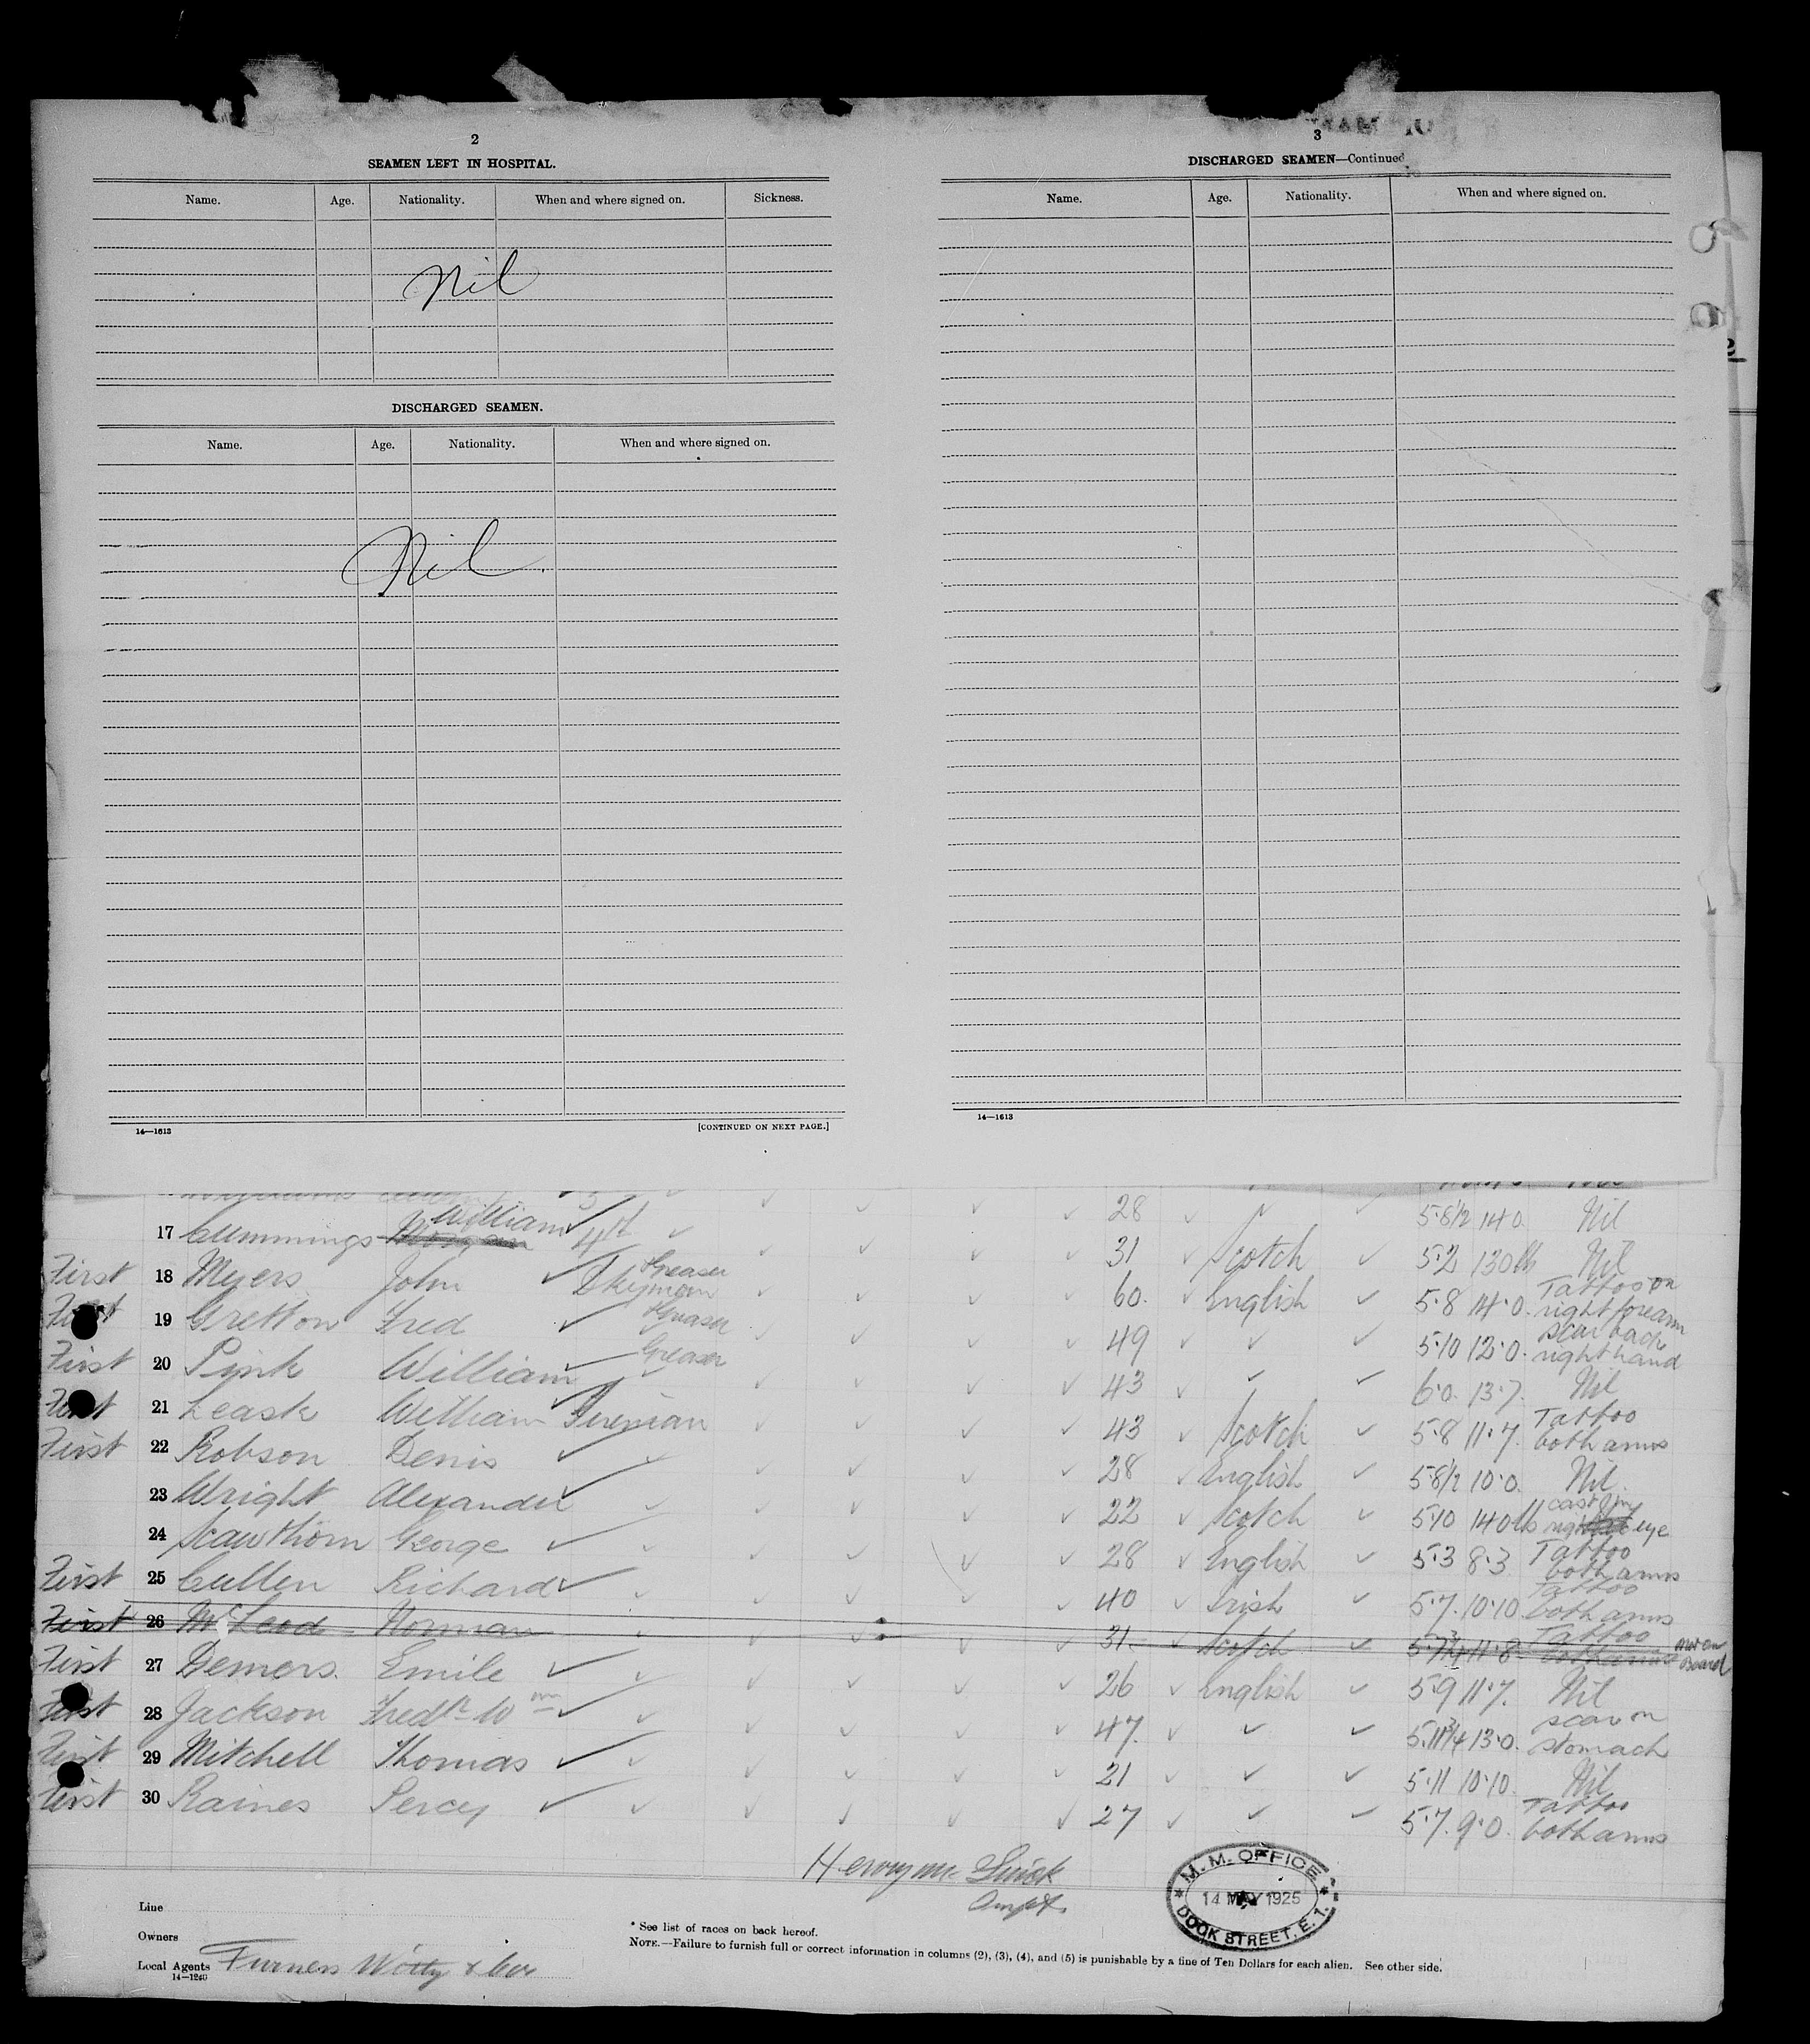 2
SEAMEN LEFT IN HOSPITAL.
Name. Age. Nationality. When and where signed on. Sickness.
Nil
DISCHARGED SEAMEN.
Name. Age. Nationality. When and where signed on.
Nil
14—1613 [CONTINUED ON NEXT PAGE.]
3
DISCHARGED SEAMEN—Continued
Name. Age. Nationality. When and where signed on.
14—1613
28 5·8½ 14·0 Nil
17 Cummings William 4th 31 Scotch 5·2 130lb Nil
First 18 Myers John Greaser 60. English 5·8 14·0. Tattoo on right forearm
First 19 Gretton Fred Greaser 49 5·10 12·0. scar back right hand
First 20 Pink William Greaser 43 6·0. 13·7. Nil
First 21 Leask William Fireman 43 Scotch 5·8 11·7. Tattoo both arms
First 22 Robson Denis 28 English 5·8½ 10·0. Nil.
23 Wright Alexander 22 Scotch 5·10 140lb cast in right eye
24 Scawthorn George 28 English 5·3 8·3 Tattoo both arms
First 25 Cullen Richard 40 Irish 5·7. 10·10 Tattoo both arms
First 26 McLeod Norman 31 Scotch 5·7¾ 11·8 Tattoo both arms Not on Board
First 27 Demers. Emile 26 English 5·9 11·7. Nil
First 28 Jackson Fredk Wm 47. 5·11¾ 13·0. scar on stomach
First 29 Mitchell Thomas 21 5·11 10·10. Nil
First 30 Raines Percy 27 5·7. 9·0. Tattoo both arms
M.M. OFFICE
14 MAY 1925
DOCK STREET, E.1.
Line
Owners
Local Agents Furness Withy & Co
14—1240
* See list of races on back hereof.
NOTE.—Failure to furnish full or correct information in columns (2), (3), (4), and (5) is punishable by a fine of Ten Dollars for each alien. See other side.